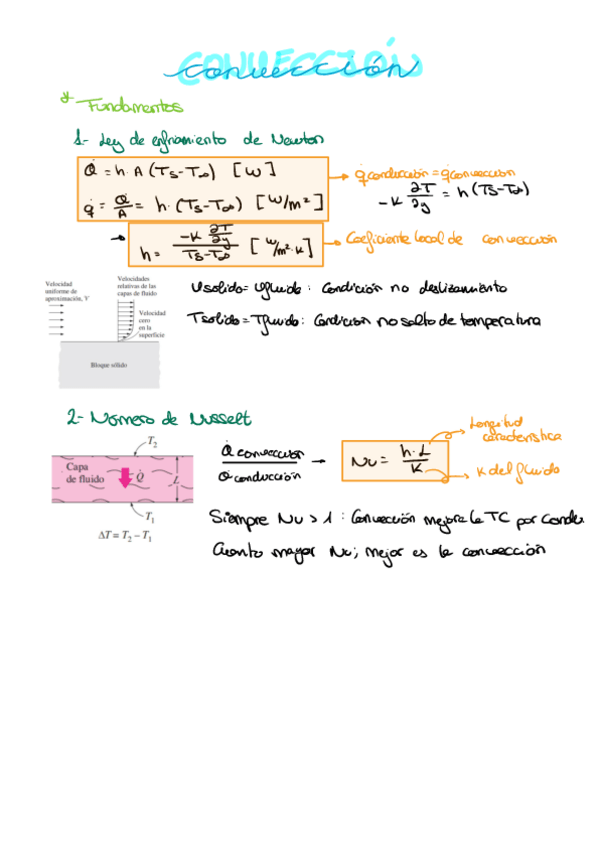 CONVECCIÓN
convección
Fundamentos
1- Ley de enfriamiento de Newton
Q̇ = h·A (Ts-T∞) [W]
q̇ = Q̇/A = h·(Ts-T∞) [W/m²]
→ q̇ conducción = q̇ convección
-K ∂T/∂y = h (Ts-T∞)
→ h = -K ∂T/∂y / Ts-T∞ [W/m²·K] → Coeficiente local de convección
Velocidad
uniforme de
aproximación, V
Velocidades
relativas de las
capas de fluido
Velocidad
cero
en la
superficie
Bloque sólido
Vsolido = Vfluido : Condición no deslizamiento
Tsolido = Tfluido : Condición no salto de temperatura
2- Número de Nusselt
T₂
Capa
de fluido
Q̇
L
T₁
ΔT = T₂ – T₁
Q̇ convección / Q̇ conducción → Nu = h·L / K
Longitud
característica
K del fluido
Siempre Nu > 1 : Convección mejora la TC por Condu.
Cuanto mayor Nu; mejor es la convección